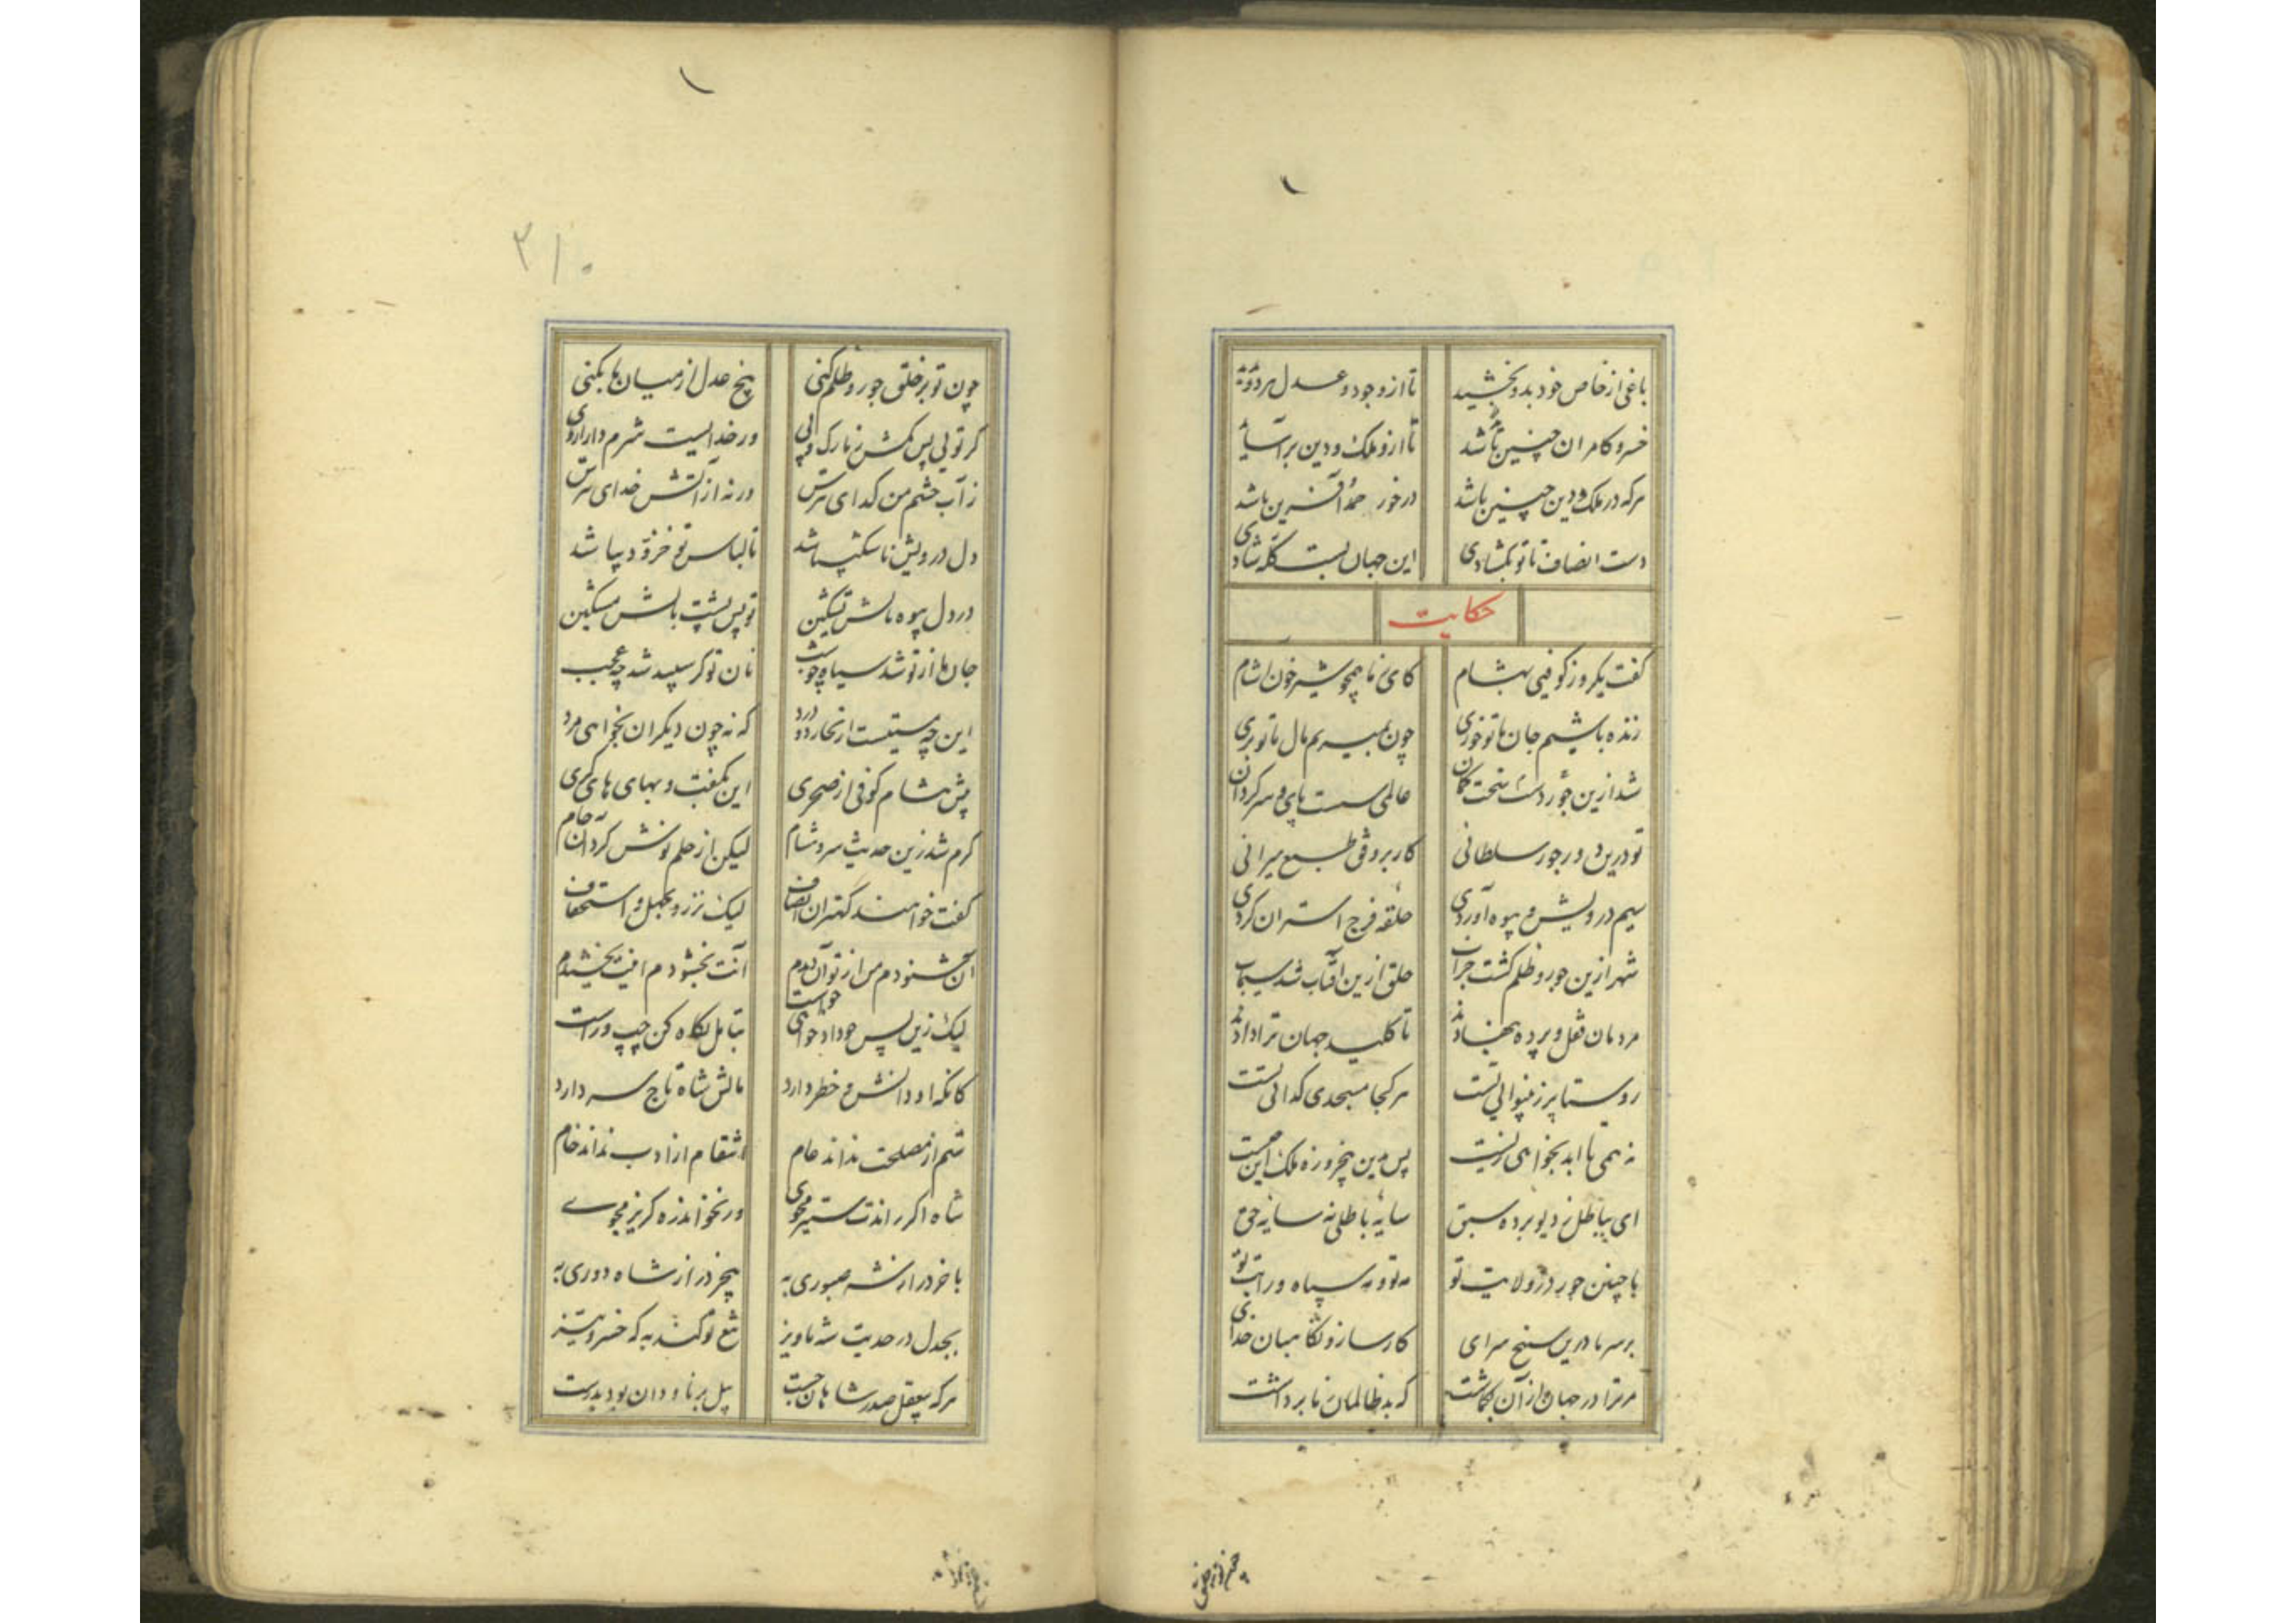 باغی از خاص خود بدو بخشید تا از وجود و عدل
خسرو کامران چنین باشد تا ازو ملک و دین
هرکه در ملک و دین چنین باشد درخور حمد و آفرین باشد
دست انصاف تا تو بگشادی این جهان بست کله شادی
حکایت
گفت یکروز کوفیی بهشام کای ز ما همچو شیر خون آشام
زنده باشیم جان ما تو خوری چون بمیریم مال ما تو بری
شد ازین جور دست سخت کمان عالمی سست پای و سرگردان
تو درین ده ز جور سلطانی کار بر وفق طبع میرانی
سیم درویش و بیوه آوردی حلقه فرج استران کردی
شهر ازین جور و ظلم گشت خراب خلق ازین آفتاب شد سیماب
مردمان قفل و پرده بنهادند تا کلید جهان ترا دادند
روستا پر ز بینوایی تست هر کجا مسجدی گدائی تست
نه همی تا ابد بخواهی زیست پس درین پنجروزه ملک این چیست
ای بباطل ز دیو برده سبق سایه باطلی نه سایه حق
با چنین جور در ولایت تو مه تو و مه سپاه و رایت تو
بر سر ما درین سپنج سرای کارساز و نگاهبان خدای
مر ترا در جهان از آن بگماشت که بد ظالمان ز ما برداشت
چون تو بر خلق جور و ظلم کنی بیخ عدل از میان ما بکنی
گر تویی پس مکش ز ما رگ و پی ور خدایست شرم دار از وی
ز آب چشم من گدای بترس ورنه از آتش خدای بترس
دل درویش ناشکیبا شد تا لباس تو خز و دیبا شد
در دل بیوه مالش تسکین تو پس پشت بالش مشکین
جان ما از تو شد سیاه چو شب نان تو گر سپید شد چه عجب
این چه مستیست از بخار که نه چون دیگران بخواهی مرد
پیش هشام کوفی از صحری این بگفت و بهای های گری
گرم شد زین حدیث سرد هشام لیکن از حلم نوش کرد آن جام
گفت خواهند کهتران انصاف لیک نز روی جهل و استخفاف
آن شنودم من از تو آن دیدم آنت بخشودم اینت بخشیدم
لیک زین پس چو داد خواهی خواست بتامل نگاه کن چپ و راست
کانکه او دانش و خطر دارد مالش شاه تاج سر دارد
ستم از مصلحت نداند عام انتقام از ادب نداند خام
شاه اگر راندت ستیز مجوی ور نخواند ره گریز مجوی
با خرد از شه صبوری به بیخرد از شاه دوری به
بجدل در حدیث شه ماویز تیغ تو کند به که خسرو تیز
هرکه بیعقل صدر شاهان جست پیل بر ناودان بود بدرست